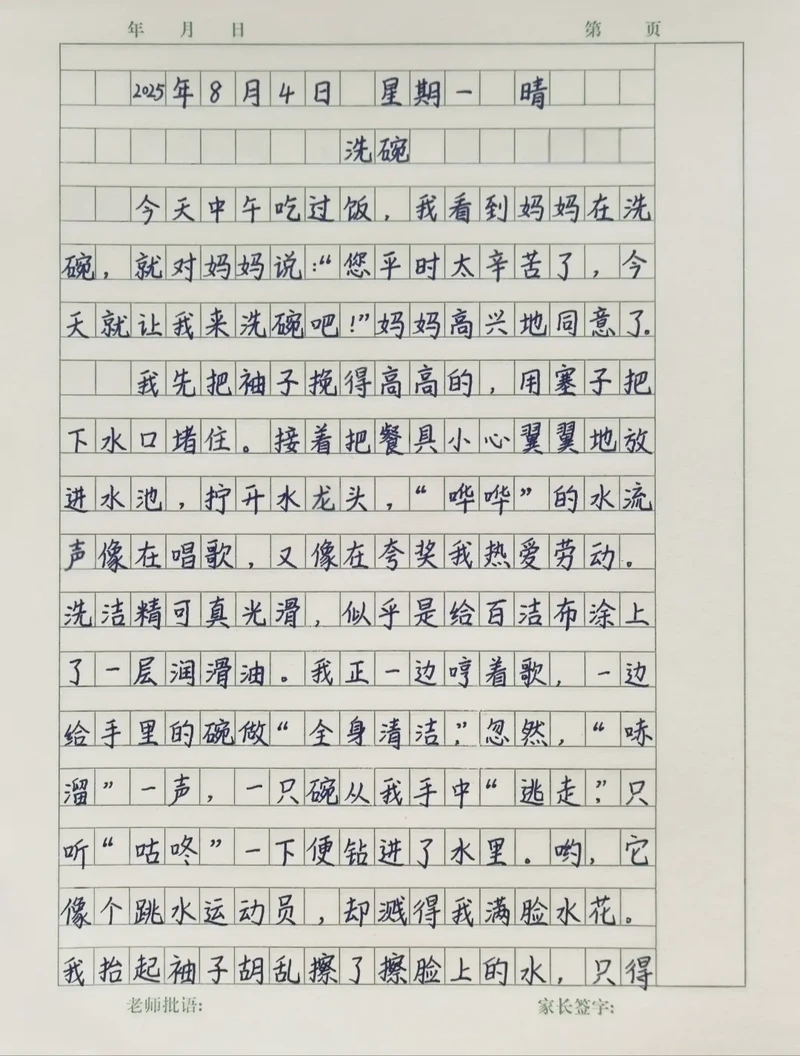 年 月 日 第 页
2025年8月4日 星期一 晴
洗碗
今天中午吃过饭，我看到妈妈在洗
碗，就对妈妈说：“您平时太辛苦了，今
天就让我来洗碗吧！”妈妈高兴地同意了.
我先把袖子挽得高高的，用塞子把
下水口堵住。接着把餐具小心翼翼地放
进水池，拧开水龙头，“哗哗”的水流
声像在唱歌，又像在夸奖我热爱劳动。
洗洁精可真光滑，似乎是给百洁布涂上
了一层润滑油。我正一边哼着歌，一边
给手里的碗做“全身清洁”，忽然，“哧
溜”一声，一只碗从我手中“逃走”，只
听“咕咚”一下便钻进了水里。哟，它
像个跳水运动员，却溅得我满脸水花。
我抬起袖子胡乱擦了擦脸上的水，只得
老师批语: 家长签字: